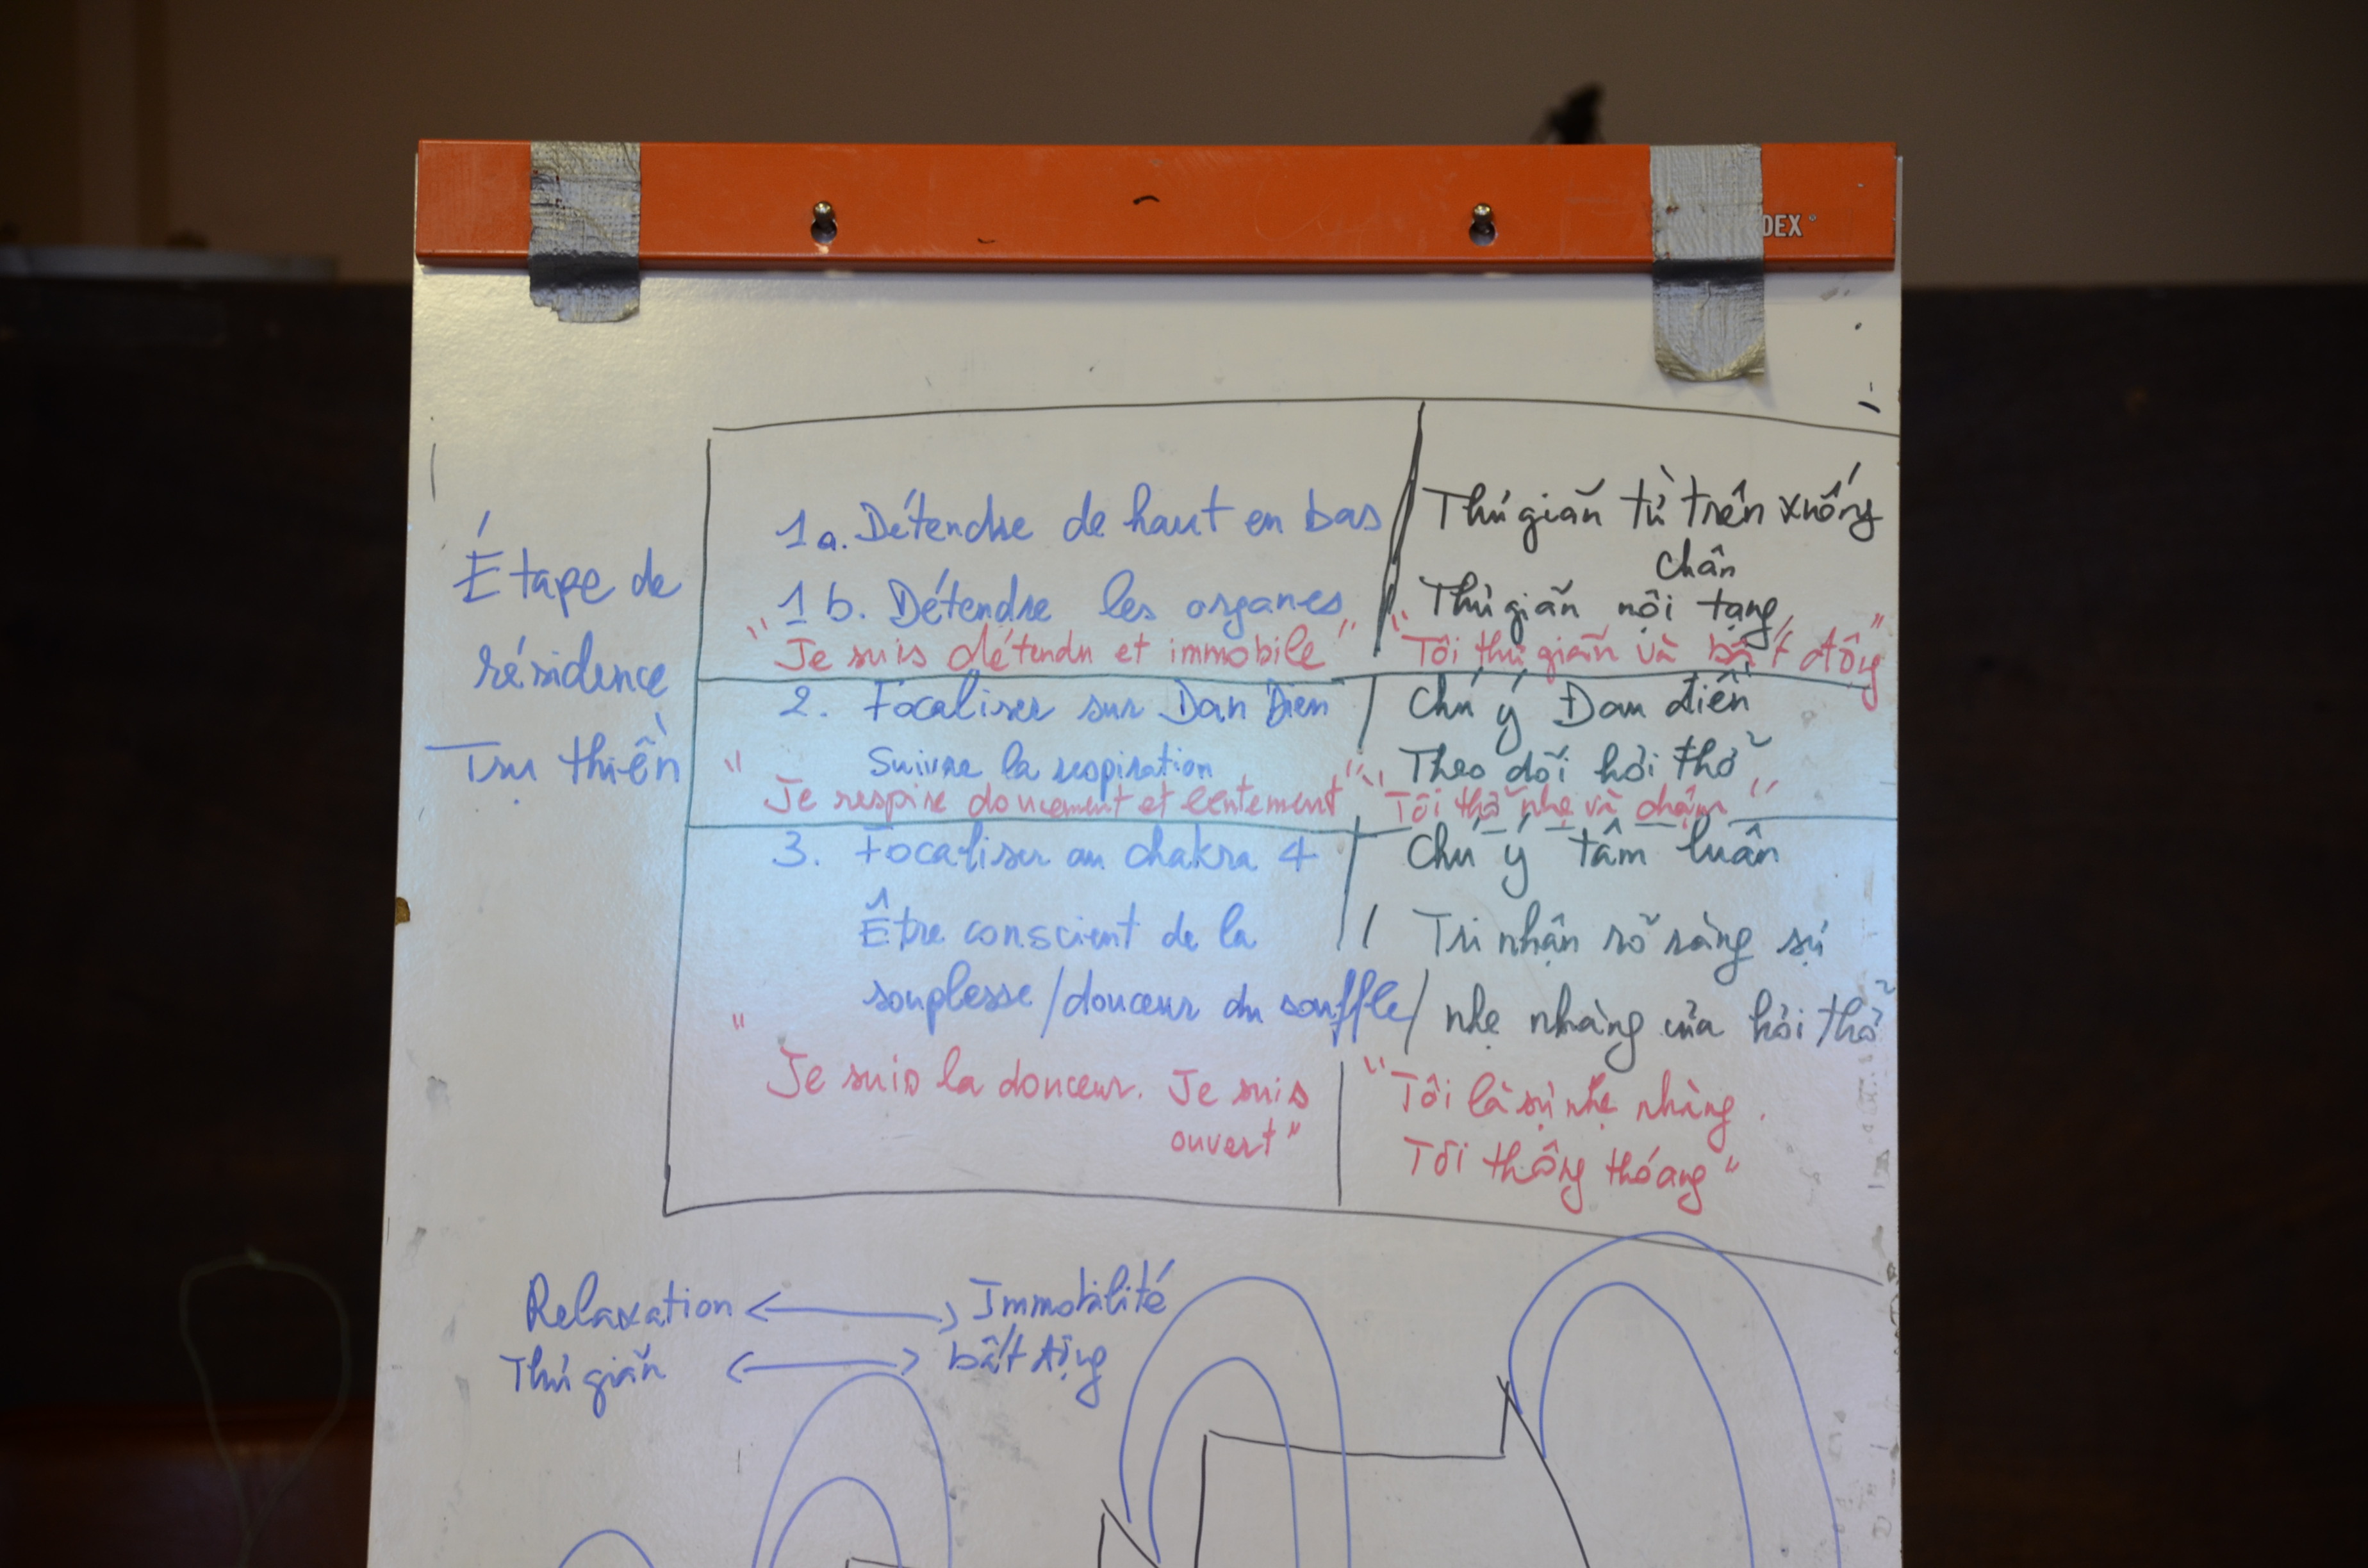 DEX
Étape de
résidence
Trụ thiền
1a. Détendre de haut en bas
1b. Détendre les organes
"Je suis détendu et immobile"
2. Focaliser sur Dan Dien
Suivre la respiration
"Je respire doucement et lentement"
3. Focaliser au chakra 4
Être conscient de la
souplesse/douceur du souffle
"Je suis la douceur. Je suis
ouvert"
Thư giãn từ trên xuống
chân
Thư giãn nội tạng
"Tôi thư giãn và bất động"
Chú ý Đan điền
Theo dõi hơi thở
"Tôi thở nhẹ và chậm"
Chú ý tâm luân
Tri nhận rõ ràng sự
nhẹ nhàng của hơi thở
"Tôi là sự nhẹ nhàng.
Tôi thông thóang"
Relaxation <—> Immobilité
Thư giãn <—> bất động